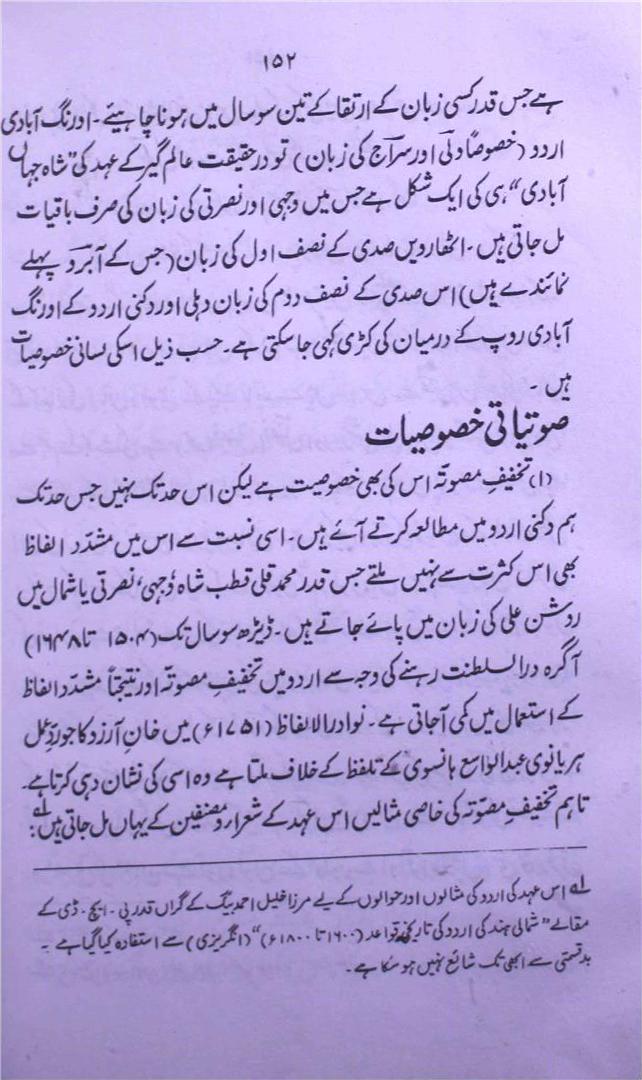 ۱۵۲
ہے جس قدر کسی زبان کے ارتقا کے تین سو سال میں ہونا چاہیئے ۔ اورنگ آبادی
اردو (خصوصاً ولی اور سراج کی زبان) تو در حقیقت عالم گیر کے عہد کی "شاہ جہاں
آبادی" ہی کی ایک شکل ہے جس میں وجہی اور نصرتی کی زبان کی صرف باقیات
مل جاتی ہیں ۔ اٹھارویں صدی کے نصف اول کی زبان (جس کے آبرو پہلے
نمائندے ہیں) اس صدی کے نصف دوم کی زبان دہلی اور دکنی اردو کے اورنگ
آبادی روپ کے درمیان کی کڑی کہی جا سکتی ہے ۔ حسب ذیل اسکی لسانی خصوصیات
ہیں ۔
صوتیاتی خصوصیات
(۱) تخفیف مصوتہ اس کی بھی خصوصیت ہے لیکن اس حد تک نہیں جس حد تک
ہم دکنی اردو میں مطالعہ کرتے آئے ہیں ۔ اسی نسبت سے اس میں مشدّد الفاظ
بھی اس کثرت سے نہیں ملتے جس قدر محمد قلی قطب شاہ، وجہی، نصرتی یا شمال میں
روشن علی کی زبان میں پائے جاتے ہیں ۔ ڈیڑھ سو سال تک (۱۵۰۴ تا ۱۶۴۸)
آگرہ درالسلطنت رہنے کی وجہ سے اردو میں تخفیف مصوتہ اور نتیجتاً مشدّد الفاظ
کے استعمال میں کمی آجاتی ہے ۔ نوادر الالفاظ (۱۷۵۱ء) میں خان آرزو کا جو ردِّ عمل
ہریانوی عبدالواسع ہانسوی کے تلفظ کے خلاف ملتا ہے وہ اسی کی نشان دہی کرتا ہے ۔
تاہم تخفیفِ مصوّتہ کی خاصی مثالیں اس عہد کے شعراء و مصنفین کے یہاں مل جاتی ہیں لہ :
لہ اس عہد کی اردو کی مثالوں اور حوالوں کے لیے مرزا خلیل احمد بیگ کے گراں قدر پی ۔ ایچ ۔ ڈی کے
مقالے "شمالی ہند کی اردو کی تاریخی قواعد (۱۶۰۰ تا ۱۸۰۰ء)" (انگریزی) سے استفادہ کیا گیا ہے ۔
بدقسمتی سے ابھی تک شائع نہیں ہو سکا ہے ۔